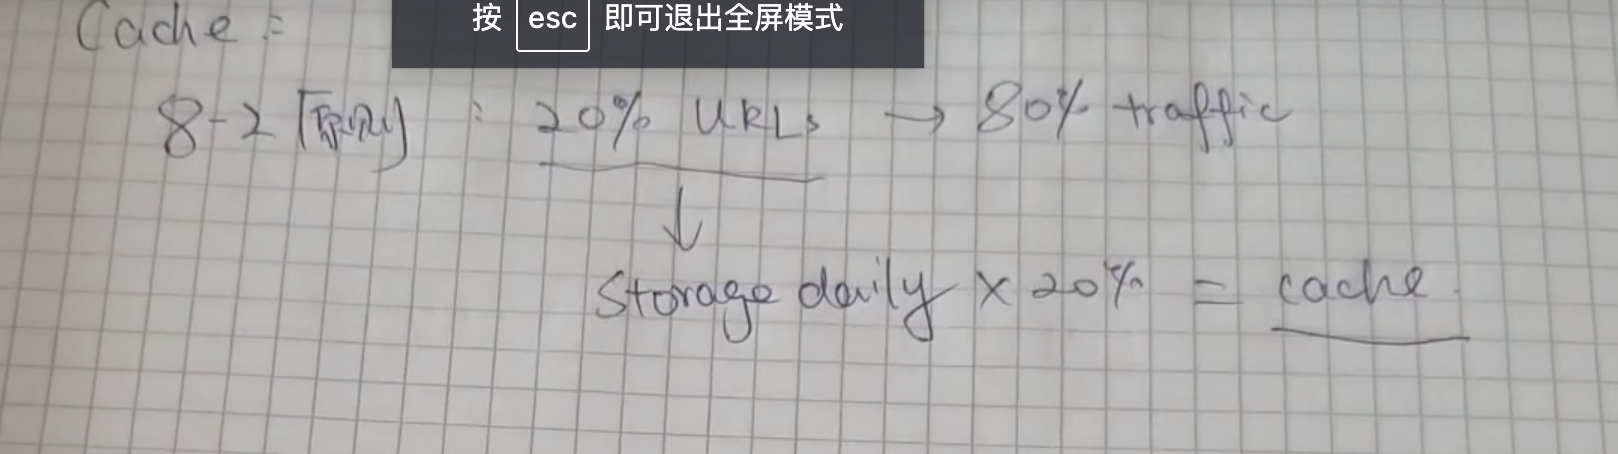 按 esc 即可退出全屏模式
Cache :
8-2 原则 : 20% URLs → 80% traffic
↓
Storage daily × 20% = cache